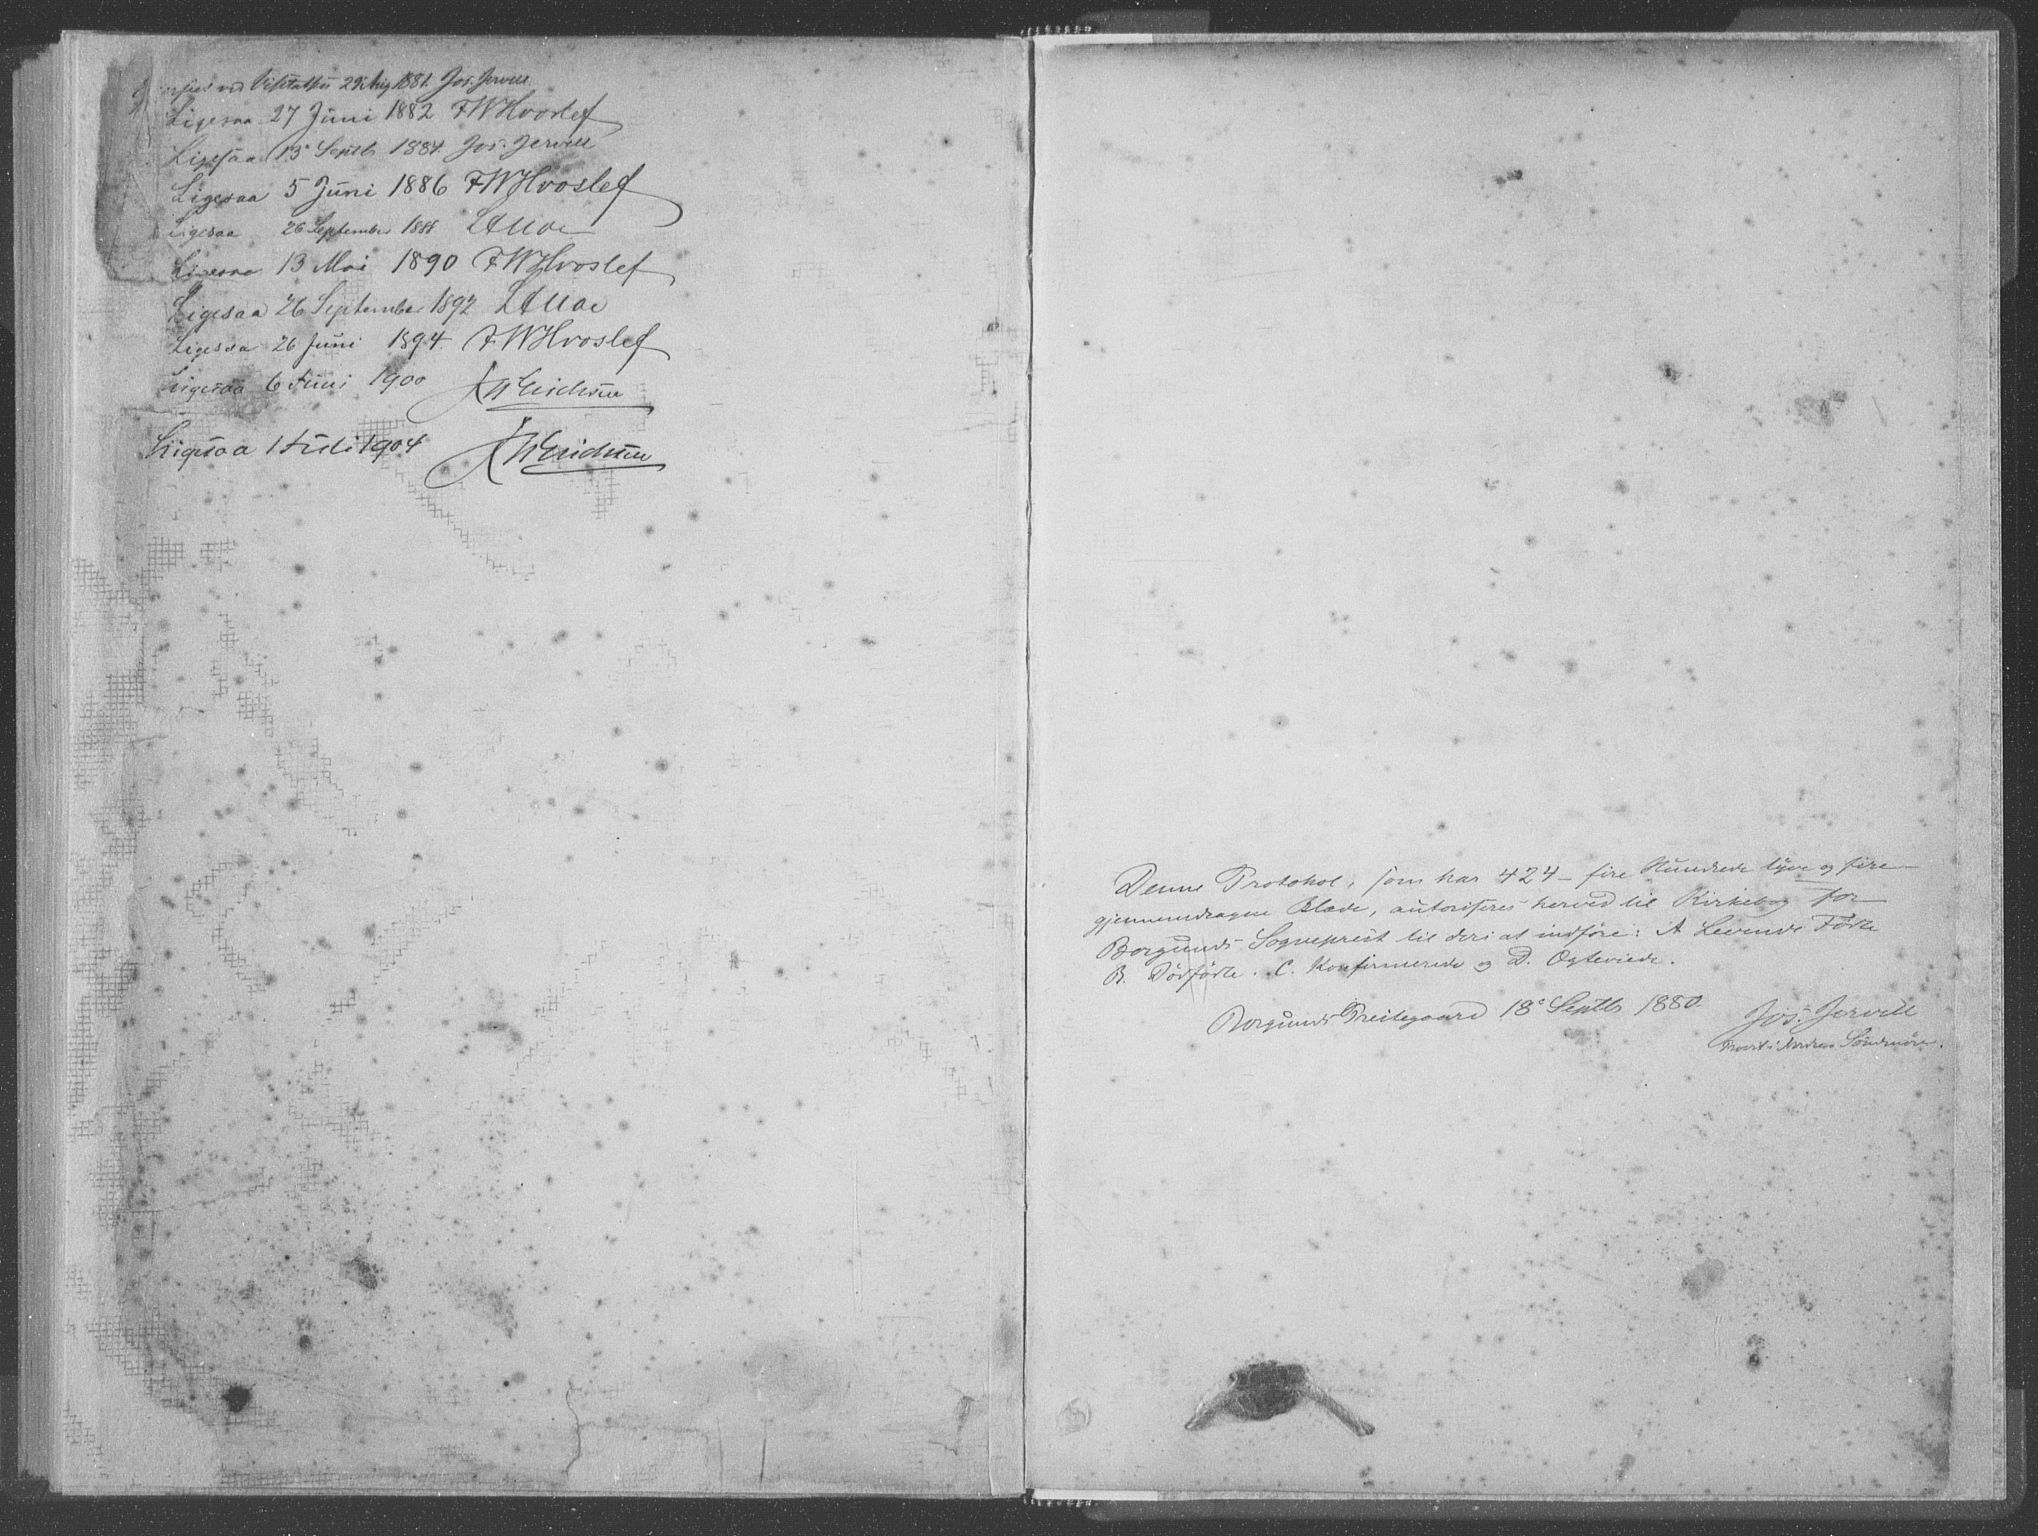 ved Visitatsen 29 Aug 1881. Jos. Jervell
Ligesaa 27 Juni 1882 FWHvoslef
Ligesaa 13 Septb 1884. Jos. Jervell
Ligesaa 5 Juni 1886 FWHvoslef
Ligesaa 26 September 1888
Ligesaa 13 Mai 1890 FWHvoslef
Ligesaa 26 September 1892
Ligesaa 26 Juni 1894. FWHvoslef
Ligesaa 6 Juni 1900
Ligesaa 1 Juli 1904
Denne Protokol, som har 424 - fire Hundrede tyve og fire -
gjennemdragne Blade, autoriseres herved til Kirkebog for
Borgunds Sogneprest til deri at indføre: A Levende Födte
B. Dödfödte. C. Konfirmerede og D. Ægteviede.
Borgunds Prestegaard 18de Septb 1880.
Jos. Jervell
Provst i Nordre Söndmöre.